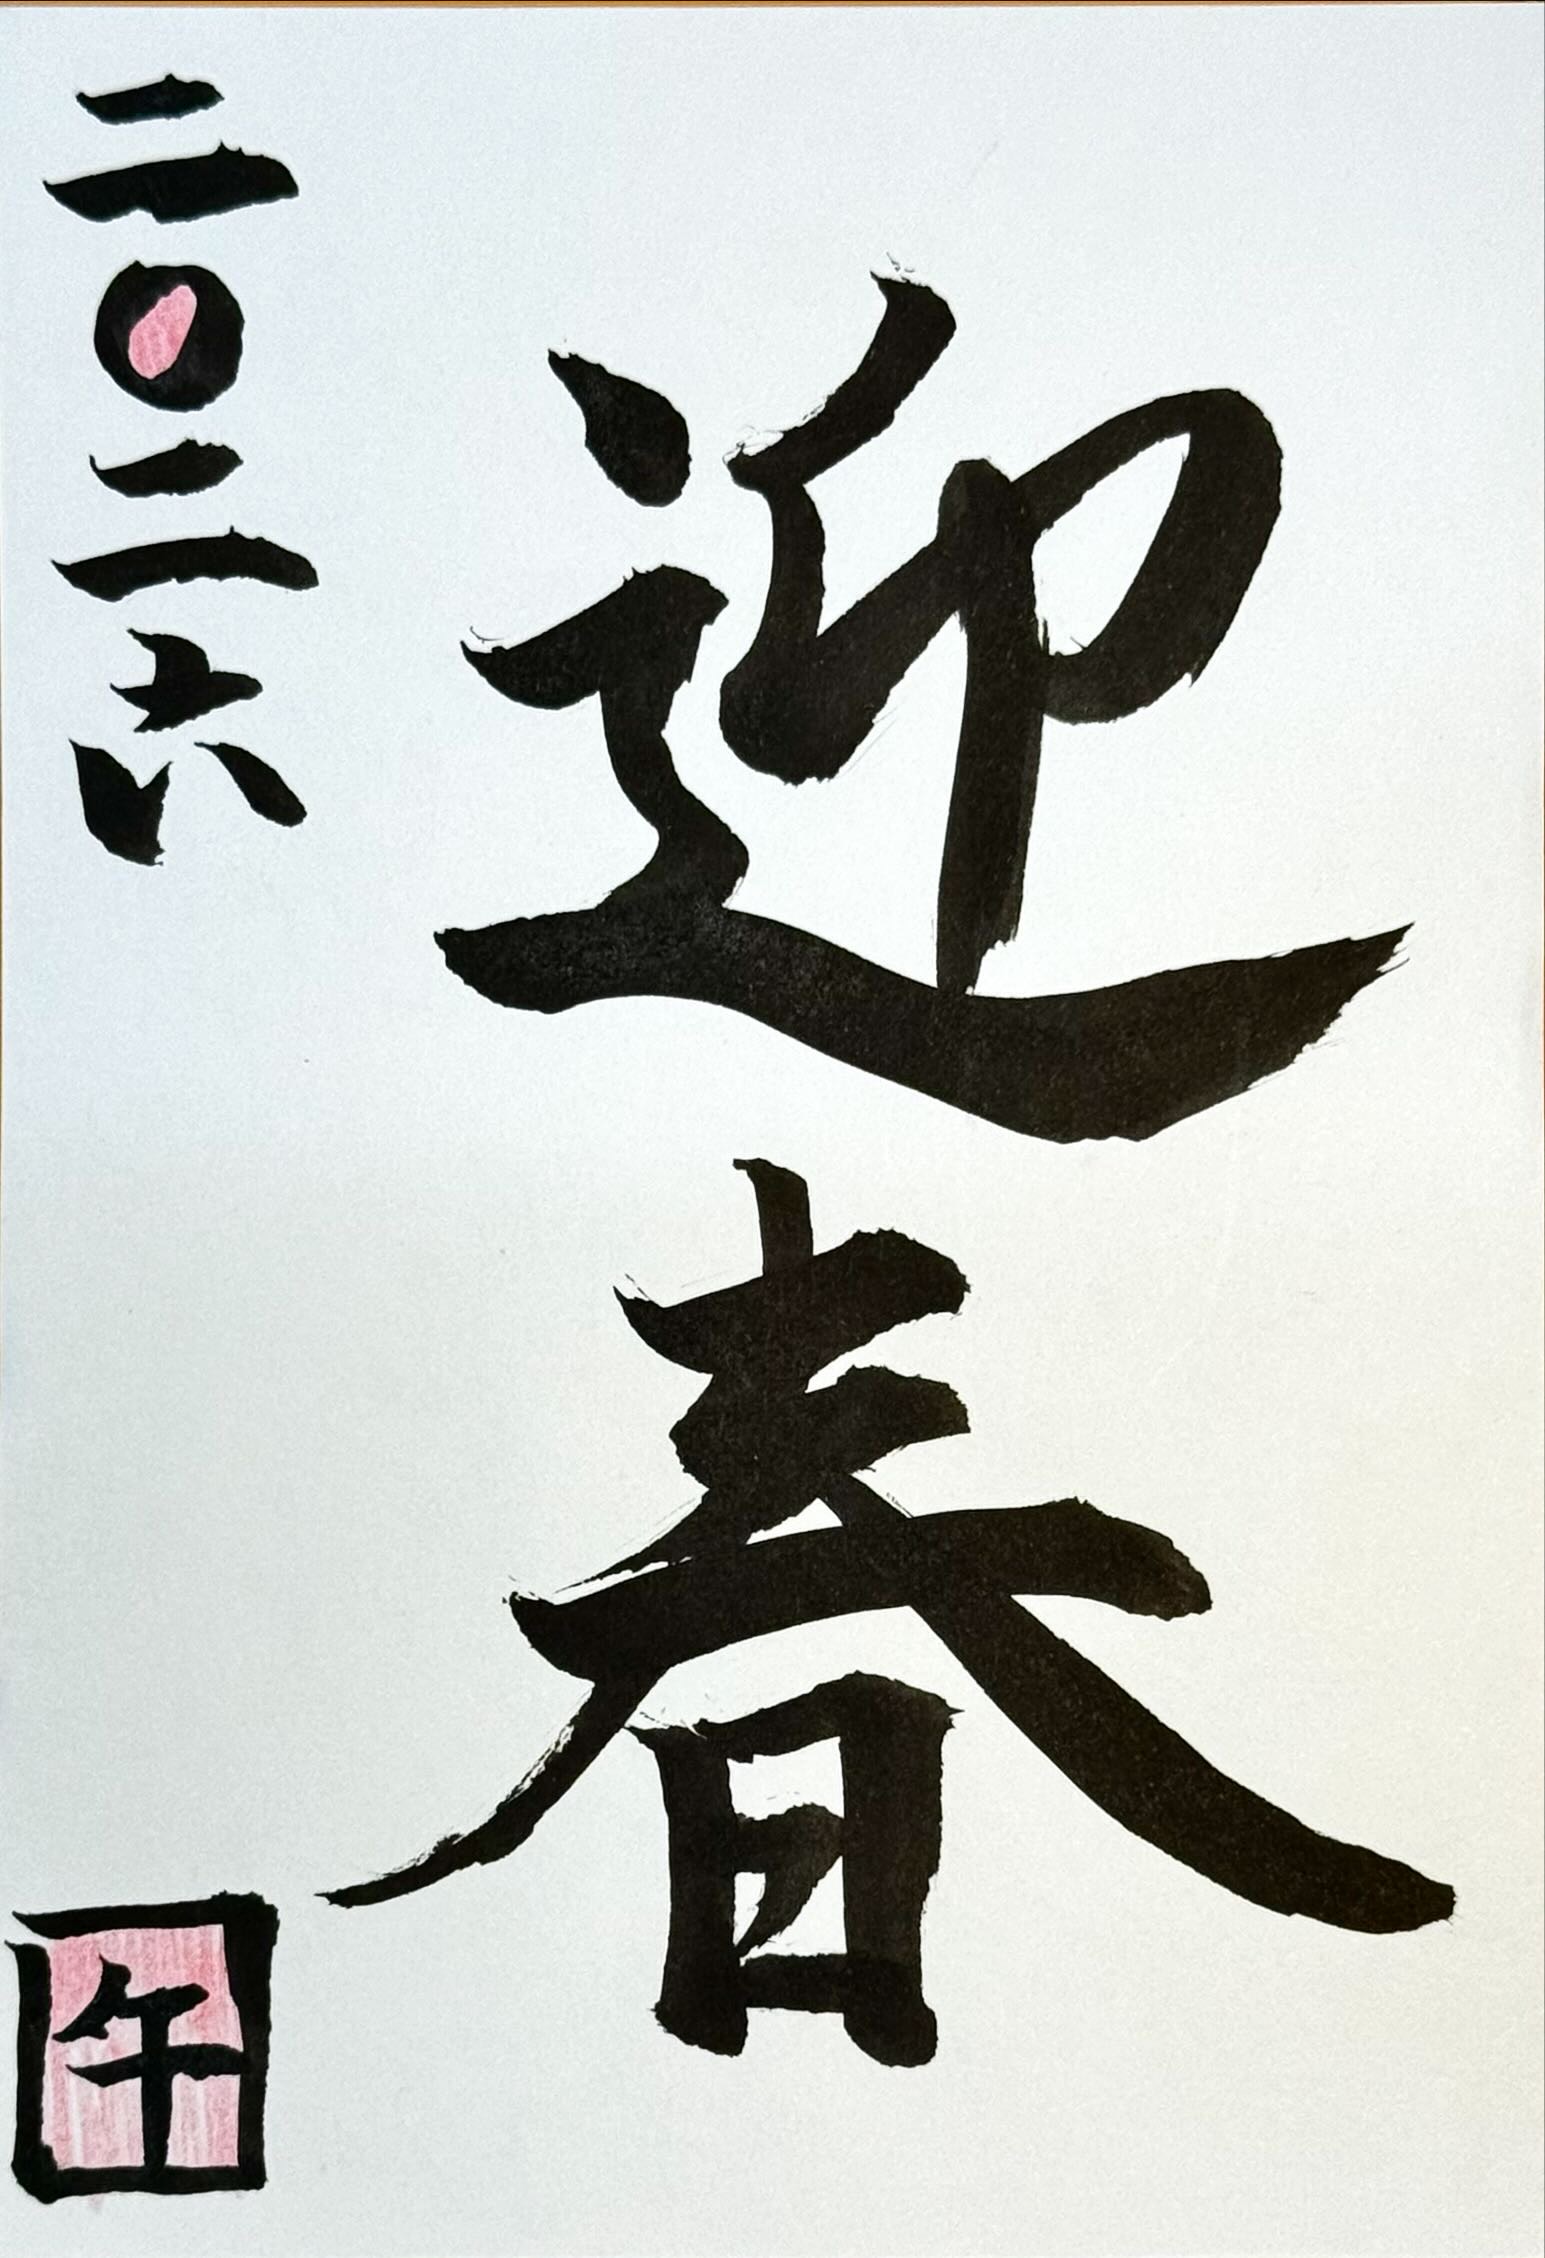 迎春
二〇二六
午